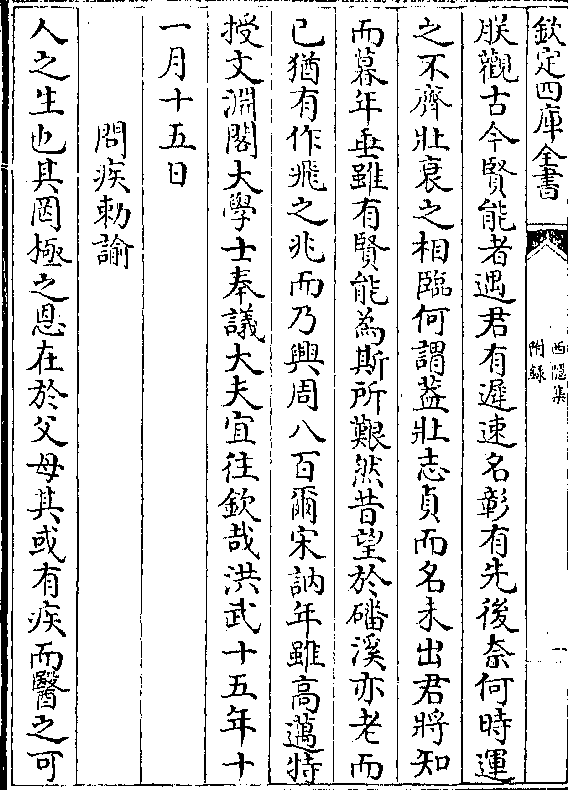 欽定四庫全書
西隱集
附録
一
朕觀古今賢能者遇君有遲速名彰有先後奈何時運
之不齊壯衰之相臨何謂葢壯志貞而名未出君將知
而暮年垂雖有賢能為斯所艱然昔望於磻溪亦老而
已猶有作飛之兆而乃興周八百爾宋訥年雖高邁特
授文淵閣大學士奉議大夫宜往欽哉洪武十五年十
一月十五日
問疾勅諭
人之生也其罔極之恩在於父母其或有疾而醫之可